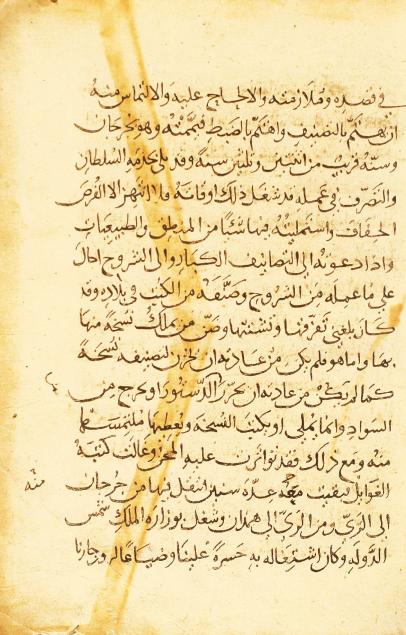 في قصده وملازمته والالحاح عليه والالتماس منه
ان يهتم بالتصنيف واهتم بالضبط فيممته وهو بجرجان
وسنه قريب من اثنين وثلثين سنة وقد بلي بخدمة السلطان
والتصرف في عمله قد شغل ذلك اوقاته فلا انتهز الا الفرص
الخفاف واستمليته فيها شيئا من المنطق والطبيعيات
واذا دعوته الى التصانيف الكبار والى الشروح احال
على ما عمله من الشروح وصنفه من الكتب في بلاده وقد
كان بلغني تفرقها وتشتتها وضن من يملك نسخة منها
بها واما هو فلم يكن من عادته ان يخزن لتصنيفه نسخة
كما لم يكن من عادته ان يحرر الدستور او يخرج من
السواد وانما يملي او يكتب النسخة ويعطيها ملتمسها
منه ومع ذلك فقد تواترت عليه المحن وغالت كتبه
الغوايل فبقيت معه عدة سنين انتقل فيها من جرجان
منه
الى الري ومن الري الى همدان وشغل بوزارة الملك شمس
الدوله وكان اشتغاله به حسرة علينا وضياعا لروزجارنا